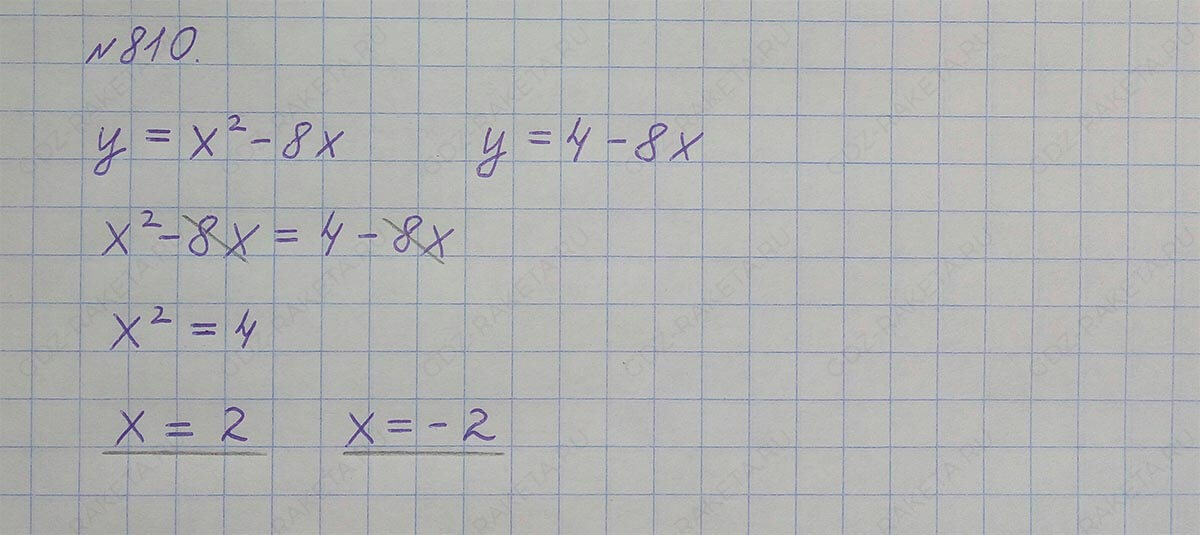 №810.
y = x² - 8x y = 4 - 8x
x² - 8x = 4 - 8x
x² = 4
x = 2 x = - 2
GDZ-RAKETA.RU